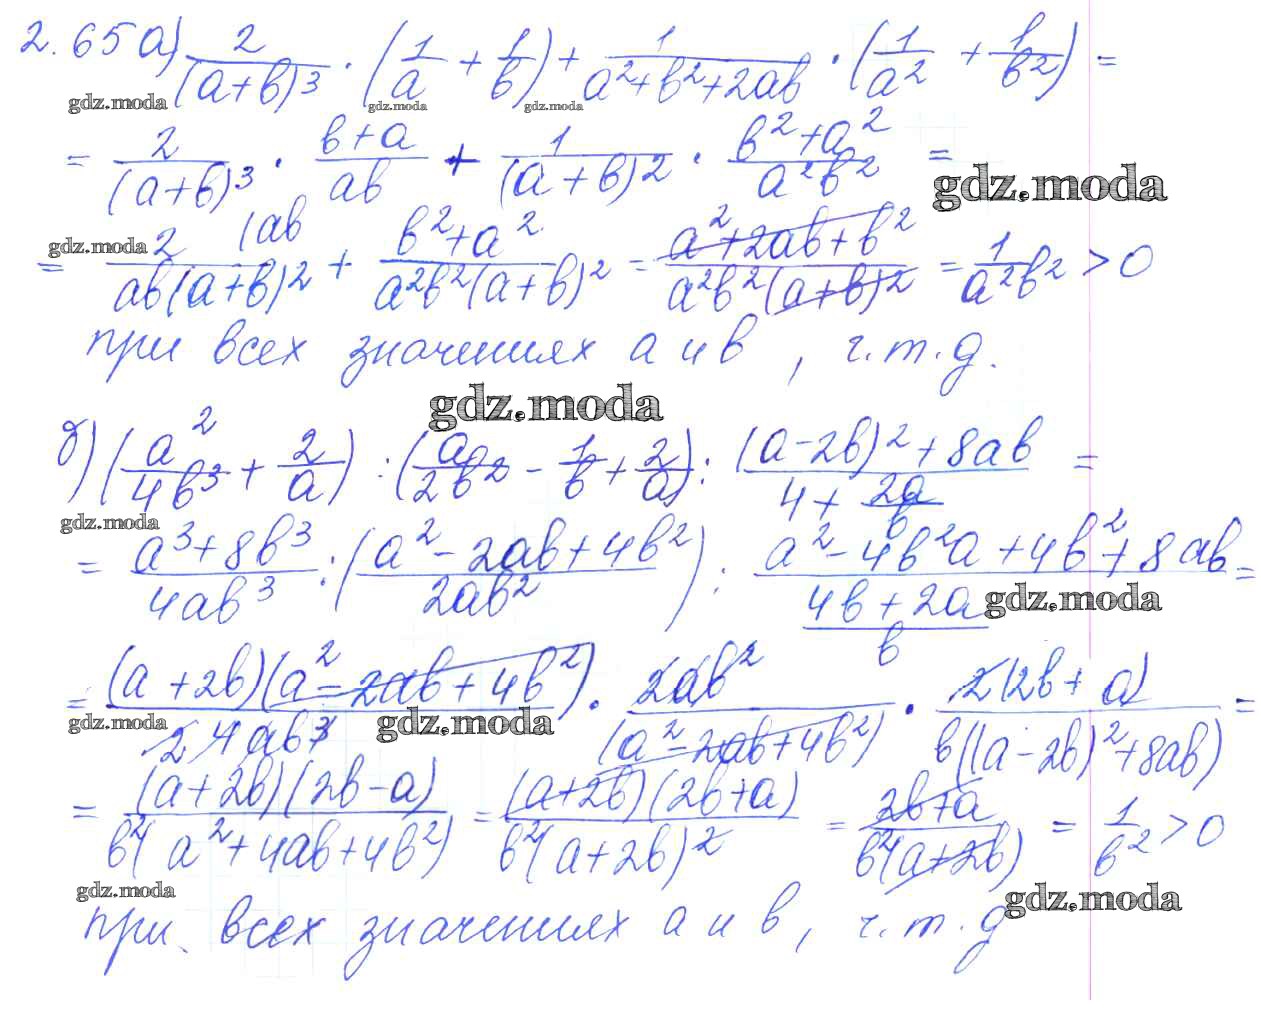 2.65 а) 2/(a+b)³ · (1/a + 1/b) + 1/(a²+b²+2ab) · (1/a² + 1/b²) =
gdz.moda gdz.moda gdz.moda
= 2/(a+b)³ · (b+a)/(ab) + 1/(a+b)² · (b²+a²)/(a²b²) =
gdz.moda
gdz.moda
= 2 (ab/(ab(a+b)²) + (b²+a²)/(a²b²(a+b)²) = (a²+2ab+b²)/(a²b²(a+b)²) = 1/(a²b²) > 0
при всех значениях a и b, ч.т.д.
gdz.moda
б) (a²/(4b³) + 2/a) : (a/(2b²) - 1/b + 2/a) : ((a-2b)²+8ab)/(4 + 2a/b) =
gdz.moda
= (a³+8b³)/(4ab³) : ((a²-2ab+4b²)/(2ab²)) : (a²-4b²a+4b²+8ab)/((4b+2a)/b) =
gdz.moda
= (a+2b)(a²-2ab+4b²)/(2 4ab³) · 2ab²/(a²-2ab+4b²) · 2(2b+a)/(b((a-2b)²+8ab)) =
gdz.moda gdz.moda
= (a+2b)(2b-a)/(b²(a²+4ab+4b²)) = (a+2b)(2b+a)/(b²(a+2b)²) = (2b+a)/(b²(a+2b)) = 1/b² > 0
gdz.moda gdz.moda
при всех значениях a и b, ч.т.д